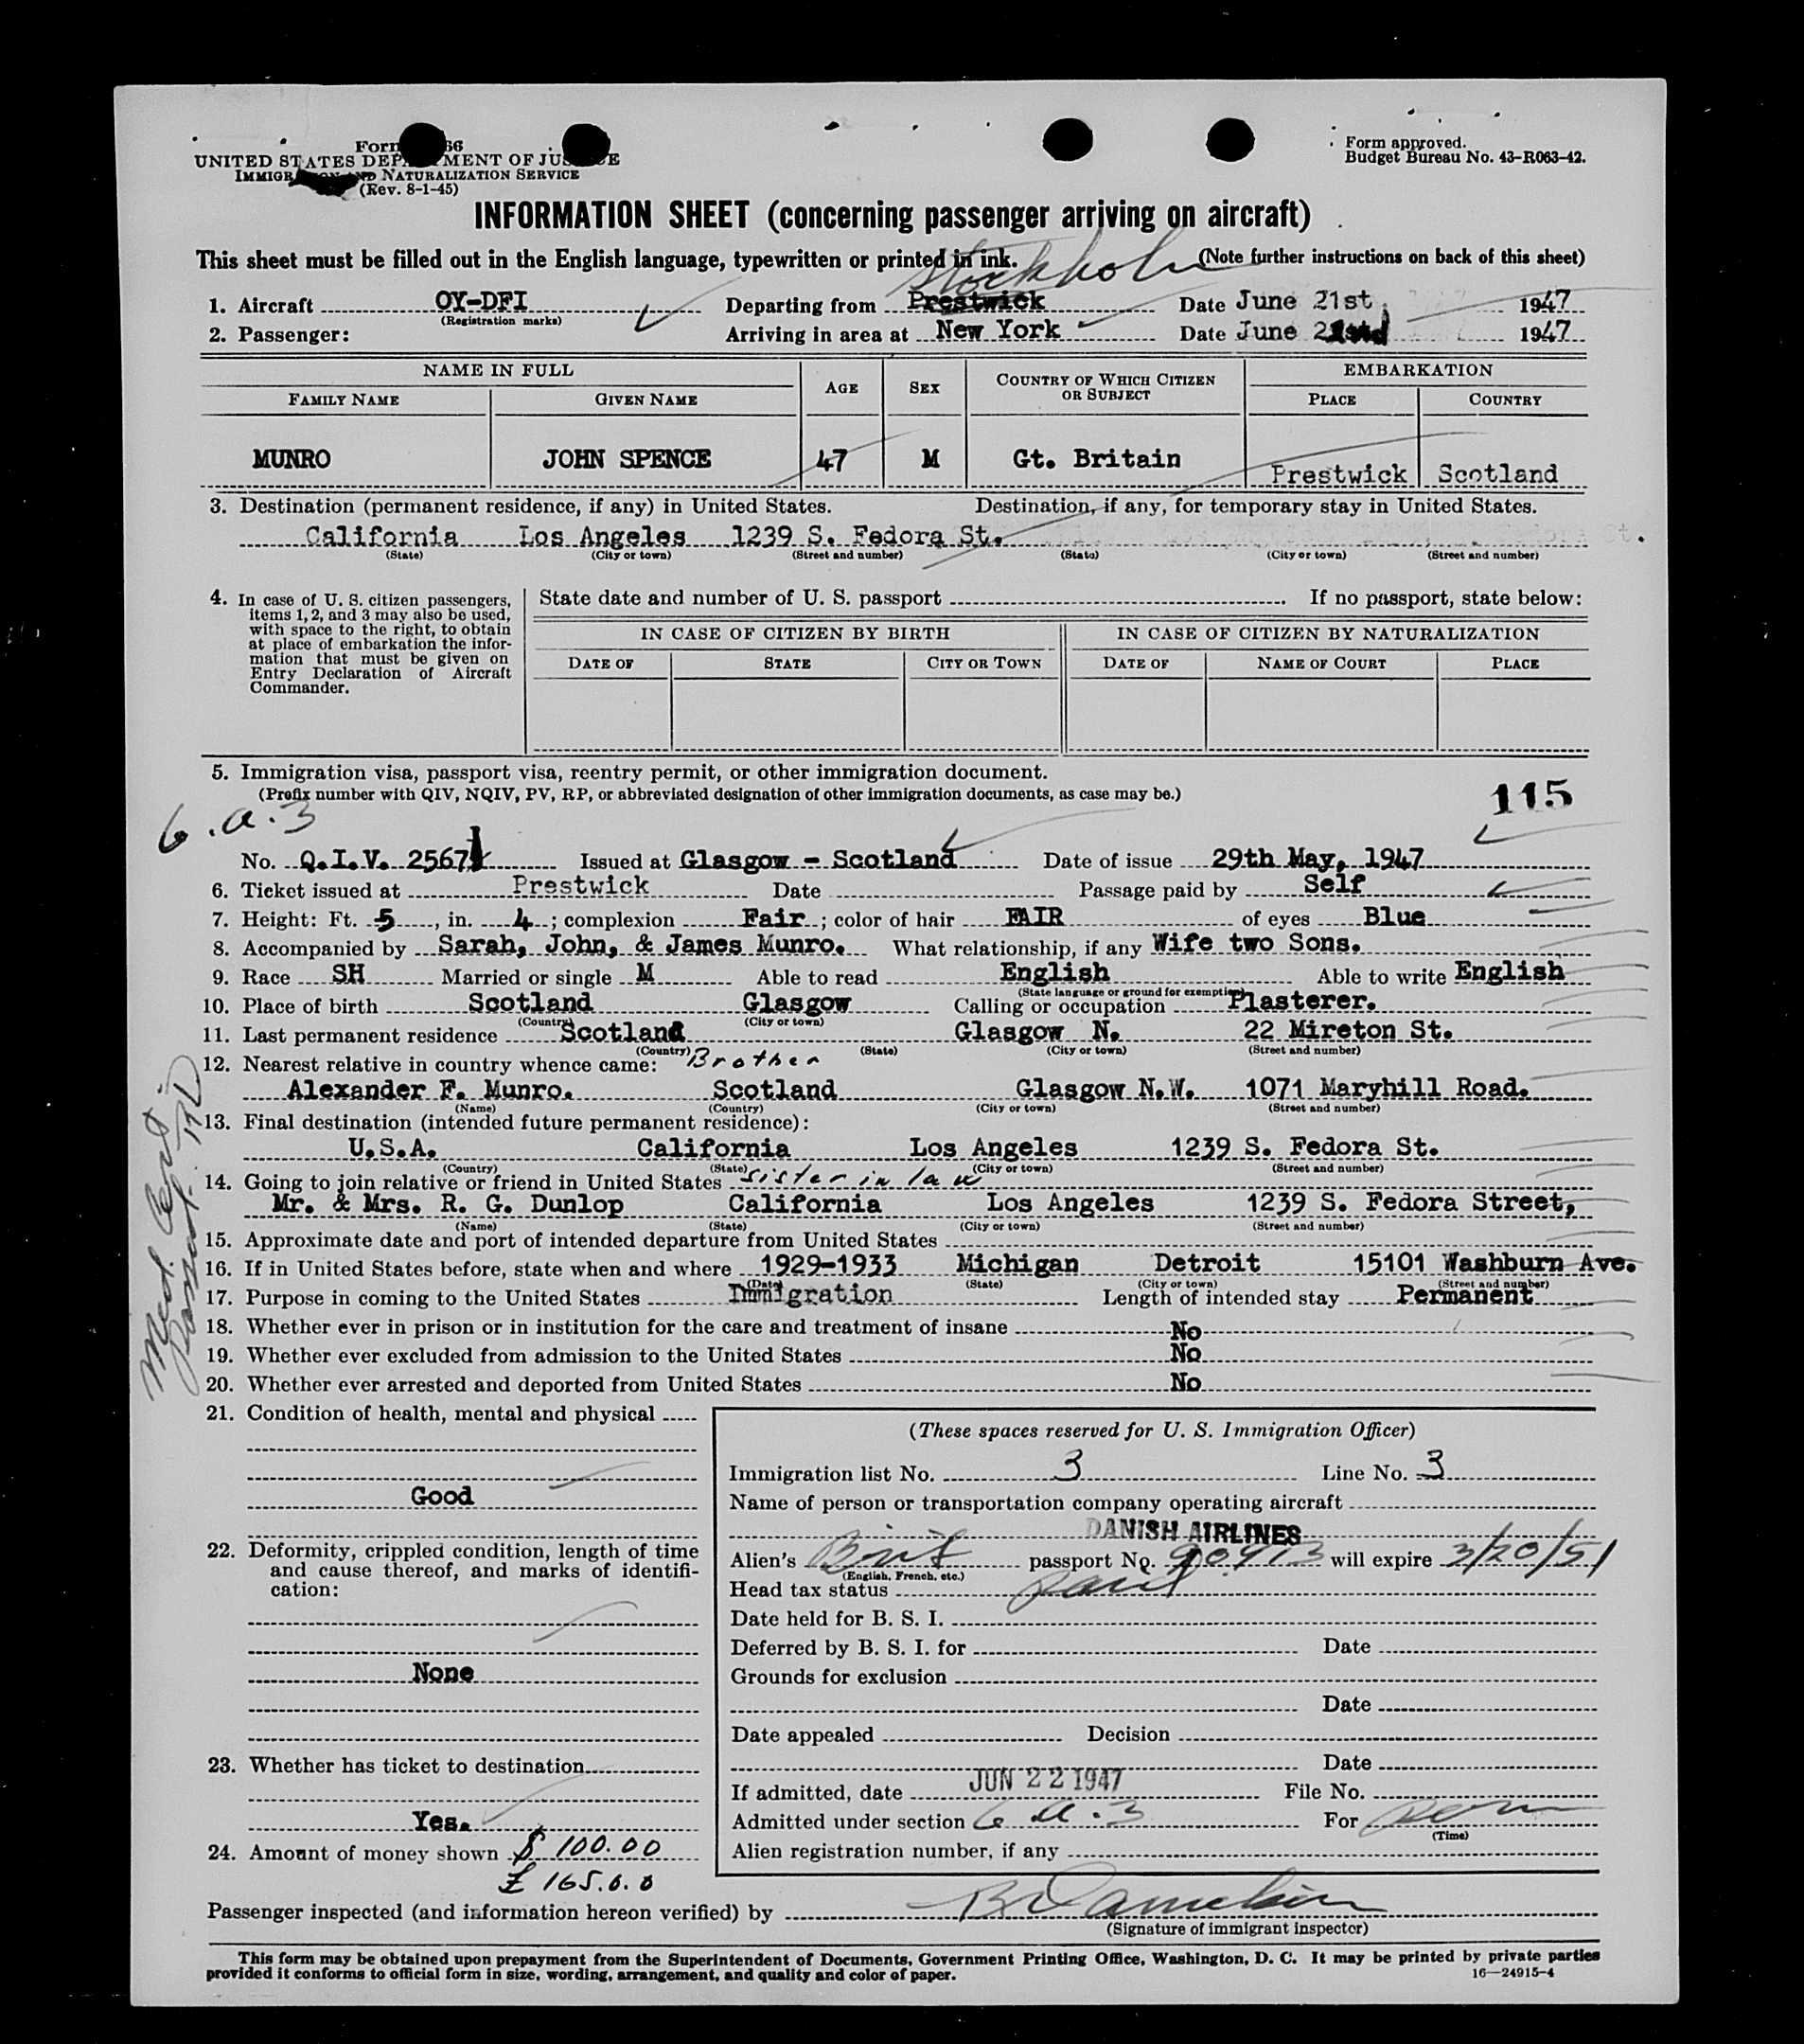 Form 66
UNITED STATES DEPARTMENT OF JUSTICE
IMMIGRATION AND NATURALIZATION SERVICE
(Rev. 8-1-45)
Form approved.
Budget Bureau No. 43-R063-42.
INFORMATION SHEET (concerning passenger arriving on aircraft)
This sheet must be filled out in the English language, typewritten or printed in ink. (Note further instructions on back of this sheet)
Stockholm
1. Aircraft OY-DFI Departing from Prestwick Date June 21st 1947
(Registration marks)
2. Passenger: Arriving in area at New York Date June 22nd 1947
NAME IN FULL AGE SEX COUNTRY OF WHICH CITIZEN OR SUBJECT EMBARKATION
FAMILY NAME GIVEN NAME PLACE COUNTRY
MUNRO JOHN SPENCE 47 M Gt. Britain Prestwick Scotland
3. Destination (permanent residence, if any) in United States. Destination, if any, for temporary stay in United States.
California Los Angeles 1239 S. Fedora St.
(State) (City or town) (Street and number) (State) (City or town) (Street and number)
4. In case of U. S. citizen passengers, items 1, 2, and 3 may also be used, with space to the right, to obtain at place of embarkation the information that must be given on Entry Declaration of Aircraft Commander.
State date and number of U. S. passport If no passport, state below:
IN CASE OF CITIZEN BY BIRTH IN CASE OF CITIZEN BY NATURALIZATION
DATE OF STATE CITY OR TOWN DATE OF NAME OF COURT PLACE
5. Immigration visa, passport visa, reentry permit, or other immigration document.
(Prefix number with QIV, NQIV, PV, RP, or abbreviated designation of other immigration documents, as case may be.)
115
6.a.3
No. Q.I.V. 2567 Issued at Glasgow - Scotland Date of issue 29th May, 1947
6. Ticket issued at Prestwick Date Passage paid by Self
7. Height: Ft. 5, in. 4; complexion Fair; color of hair FAIR of eyes Blue
8. Accompanied by Sarah, John, & James Munro. What relationship, if any Wife two Sons.
9. Race SH Married or single M Able to read English Able to write English
(State language or ground for exemption)
10. Place of birth Scotland Glasgow Calling or occupation Plasterer.
(Country) (City or town)
11. Last permanent residence Scotland Glasgow N. 22 Mireton St.
(Country) (State) (City or town) (Street and number)
12. Nearest relative in country whence came: Brother
Alexander F. Munro. Scotland Glasgow N.W. 1071 Maryhill Road.
(Name) (Country) (City or town) (Street and number)
13. Final destination (intended future permanent residence):
U.S.A. California Los Angeles 1239 S. Fedora St.
(Country) (State) (City or town) (Street and number)
14. Going to join relative or friend in United States sister in law
Mr. & Mrs. R. G. Dunlop California Los Angeles 1239 S. Fedora Street,
(Name) (State) (City or town) (Street and number)
15. Approximate date and port of intended departure from United States
16. If in United States before, state when and where 1929-1933 Michigan Detroit 15101 Washburn Ave.
(Date) (State) (City or town) (Street and number)
17. Purpose in coming to the United States Immigration Length of intended stay Permanent
18. Whether ever in prison or in institution for the care and treatment of insane No
19. Whether ever excluded from admission to the United States No
20. Whether ever arrested and deported from United States No
Med. Cert.
21. Condition of health, mental and physical
Good
22. Deformity, crippled condition, length of time and cause thereof, and marks of identification:
None
23. Whether has ticket to destination
Yes.
24. Amount of money shown $ 100.00
£ 165.0.0
(These spaces reserved for U. S. Immigration Officer)
Immigration list No. 3 Line No. 3
Name of person or transportation company operating aircraft
DANISH AIRLINES
Alien's Brit passport No. 90913 will expire 3/20/51
(English, French, etc.)
Head tax status paid
Date held for B. S. I.
Deferred by B. S. I. for Date
Grounds for exclusion
Date
Date appealed Decision
Date
If admitted, date JUN 22 1947 File No.
Admitted under section 6 a.3 For perm
(Time)
Alien registration number, if any
Passenger inspected (and information hereon verified) by
(Signature of immigrant inspector)
This form may be obtained upon prepayment from the Superintendent of Documents, Government Printing Office, Washington, D. C. It may be printed by private parties
provided it conforms to official form in size, wording, arrangement, and quality and color of paper. 16—24915-4